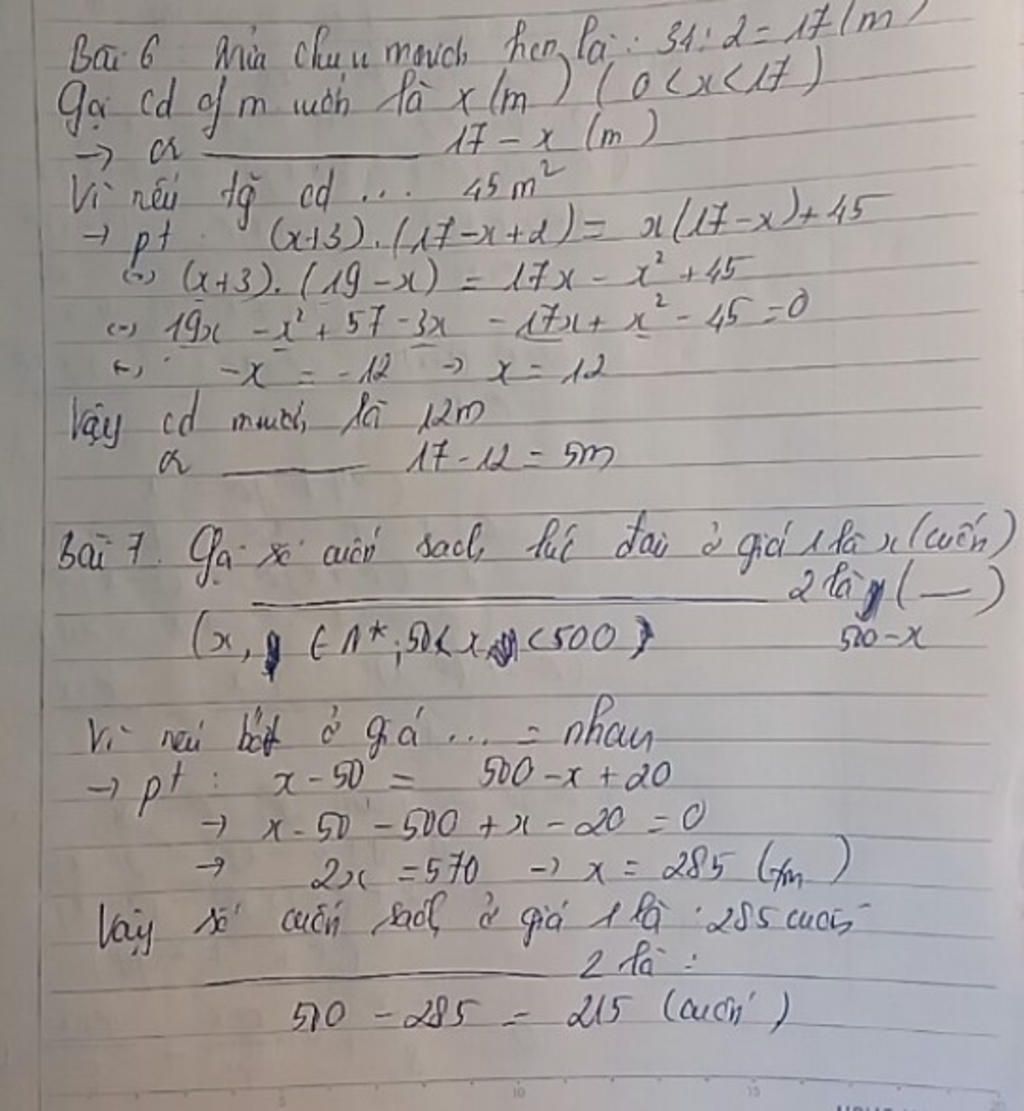 Bài 6 Nửa chu u mảnh hcn là: 34:2=17(m)
Gọi cd of m vườn là x(m) (0<x<17)
→ cr ——— 17 - x (m)
Vì nếu tg cd ... 45m²
→ pt (x+3).(17-x+2) = x(17-x)+45
(-) (x+3).(19-x) = 17x - x² + 45
(-) 19x - x² + 57 - 3x - 17x + x² - 45 = 0
(-) -x = -12 → x = 12
Vậy cd là 12m
cr ——— 17-12 = 5m
Bài 7. Gọi số cuốn sách lúc đầu ở giá 1 là x (cuốn)
——— 2 là y (—)
(x, y ∈ N*; 50<x, y<500) 500-x
Vì nếu bớt ở giá ... = nhau
→ pt : x - 50 = 500 - x + 20
→ x - 50 - 500 + x - 20 = 0
→ 2x = 570 → x = 285 (tm)
Vậy số cuốn sách ở giá 1 là : 285 cuốn
——— 2 là :
500 - 285 = 215 (cuốn)